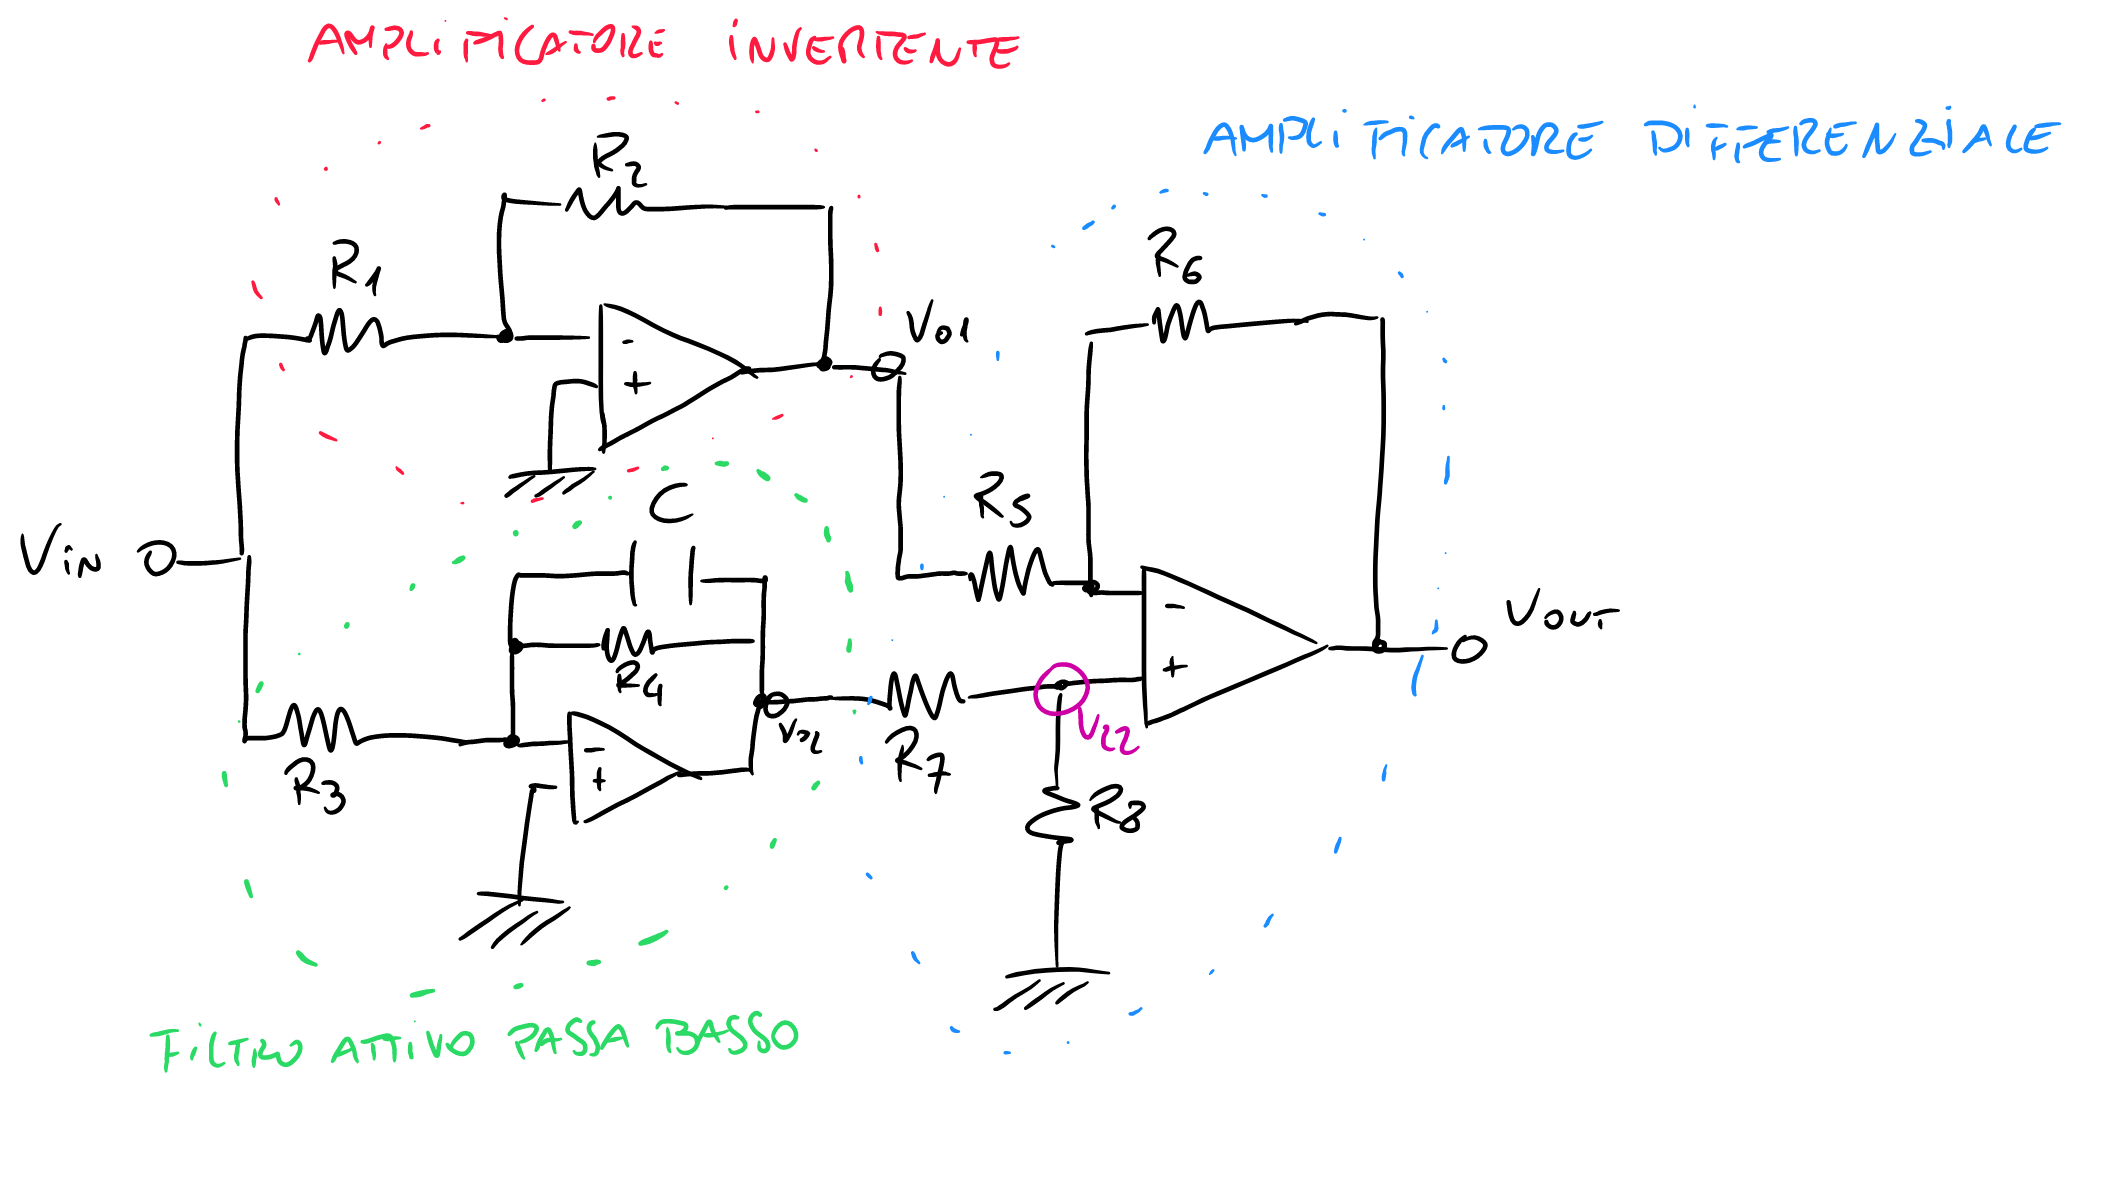 AMPLIFICATORE INVERTENTE
AMPLIFICATORE DIFFERENZIALE
R2
R6
R1
-
+
Vo1
C
R5
Vin
-
+
VOUT
R4
R7
V22
R3
-
+
Vo2
R8
FILTRO ATTIVO PASSA BASSO